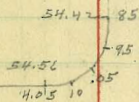 54.42 .85
.95
54.56
.05
4.05 10